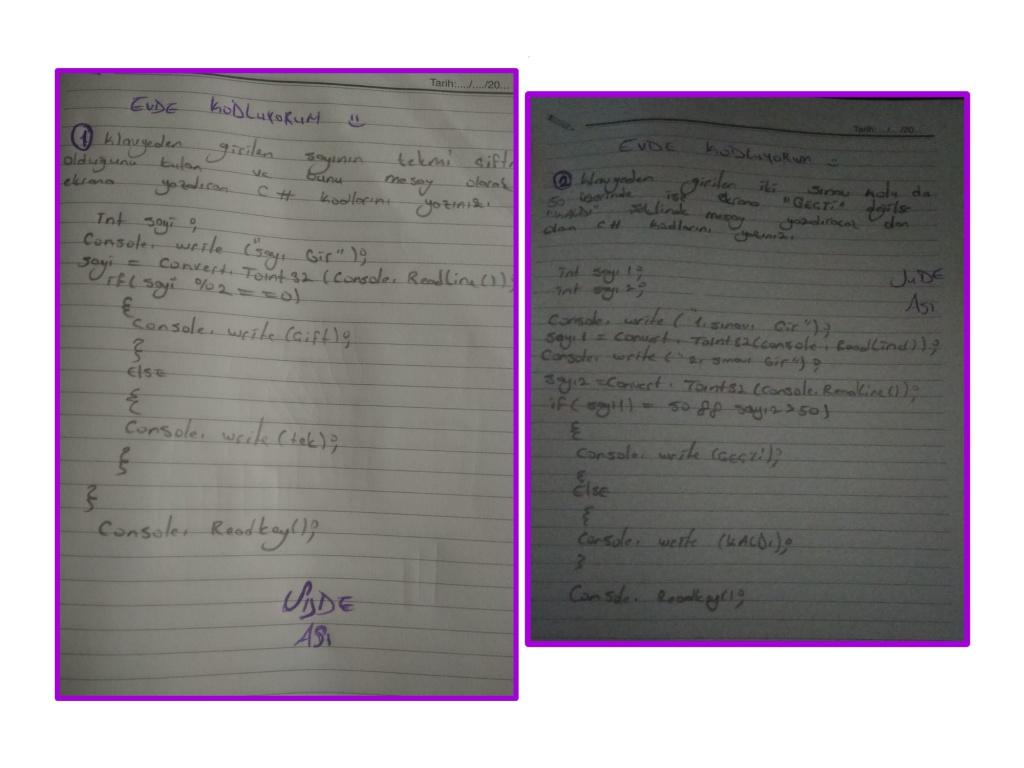 Tarih:..../..../20...
EVDE KODLUYORUM
1 Klavyeden girilen sayının tekmi çiftmi
olduğunu bulan ve bunu mesaj olarak
ekrana yazdıran C# kodlarını yazınız.
Int sayi;
Console. write ("sayı Gir");
sayi = Convert. Toint32 (Console. ReadLine());
if( sayi %2 = =0)
{
Console. write (Çift);
}
else
{
Console. write (tek);
}
}
Console. Readkey();
JUDE
ASi
Tarih:..../..../20...
EVDE KODLUYORUM
2 Klavyeden girilen iki sınav notu da
50 üzerinde ise ekrana "GEÇTİ" değilse
"KALDI" şeklinde mesaj yazdıracak
olan C# kodlarını yazınız.
int sayı1;
int sayı2;
JUDE
ASi
Console. write ("1. sınavı Gir");
sayı1 = Convert. Toint32(console. ReadLine());
Console. write ("2. sınavı Gir");
sayı2 =Convert. Toint32 (Console.ReadLine());
if( sayı1) = 50 && sayı2>50)
{
Console. write (GEÇTi);
}
else
{
Console. write (KALDı);
}
Console. Readkey();